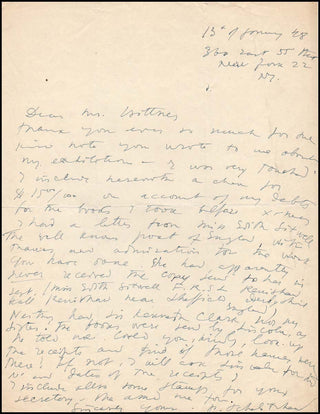 13th of January 48
360 East 55 Street
New York 22
N.Y.
Dear Mrs. Wittner
Thank you ever so much for the
nice note you wrote to me about
my exhibition – I was very touched.
I inclose herewith a check for
$150/00 on account of my debts
for the books I took before X-mas
I had a letter from Miss Edith Sitwell
The well know poet of England, with
thanks and admiration for the work
you have done. She has apparently
never received the copy sent to her is
sent, (Miss Edith Sitwell Renishaw
Hall Renishaw near Sheffield Derbyshire
England)
Neither has Sir Kenneth Clark, nor my
sister. The books were sent by Lincoln, as
he told me. Could you, kindly, look up
the receipts and find if those names were
there? If not, I will ask Lincoln for
and dates of the receipts?
I inclose also some stamps for your
secretary – she asked me for
Sincerely yours